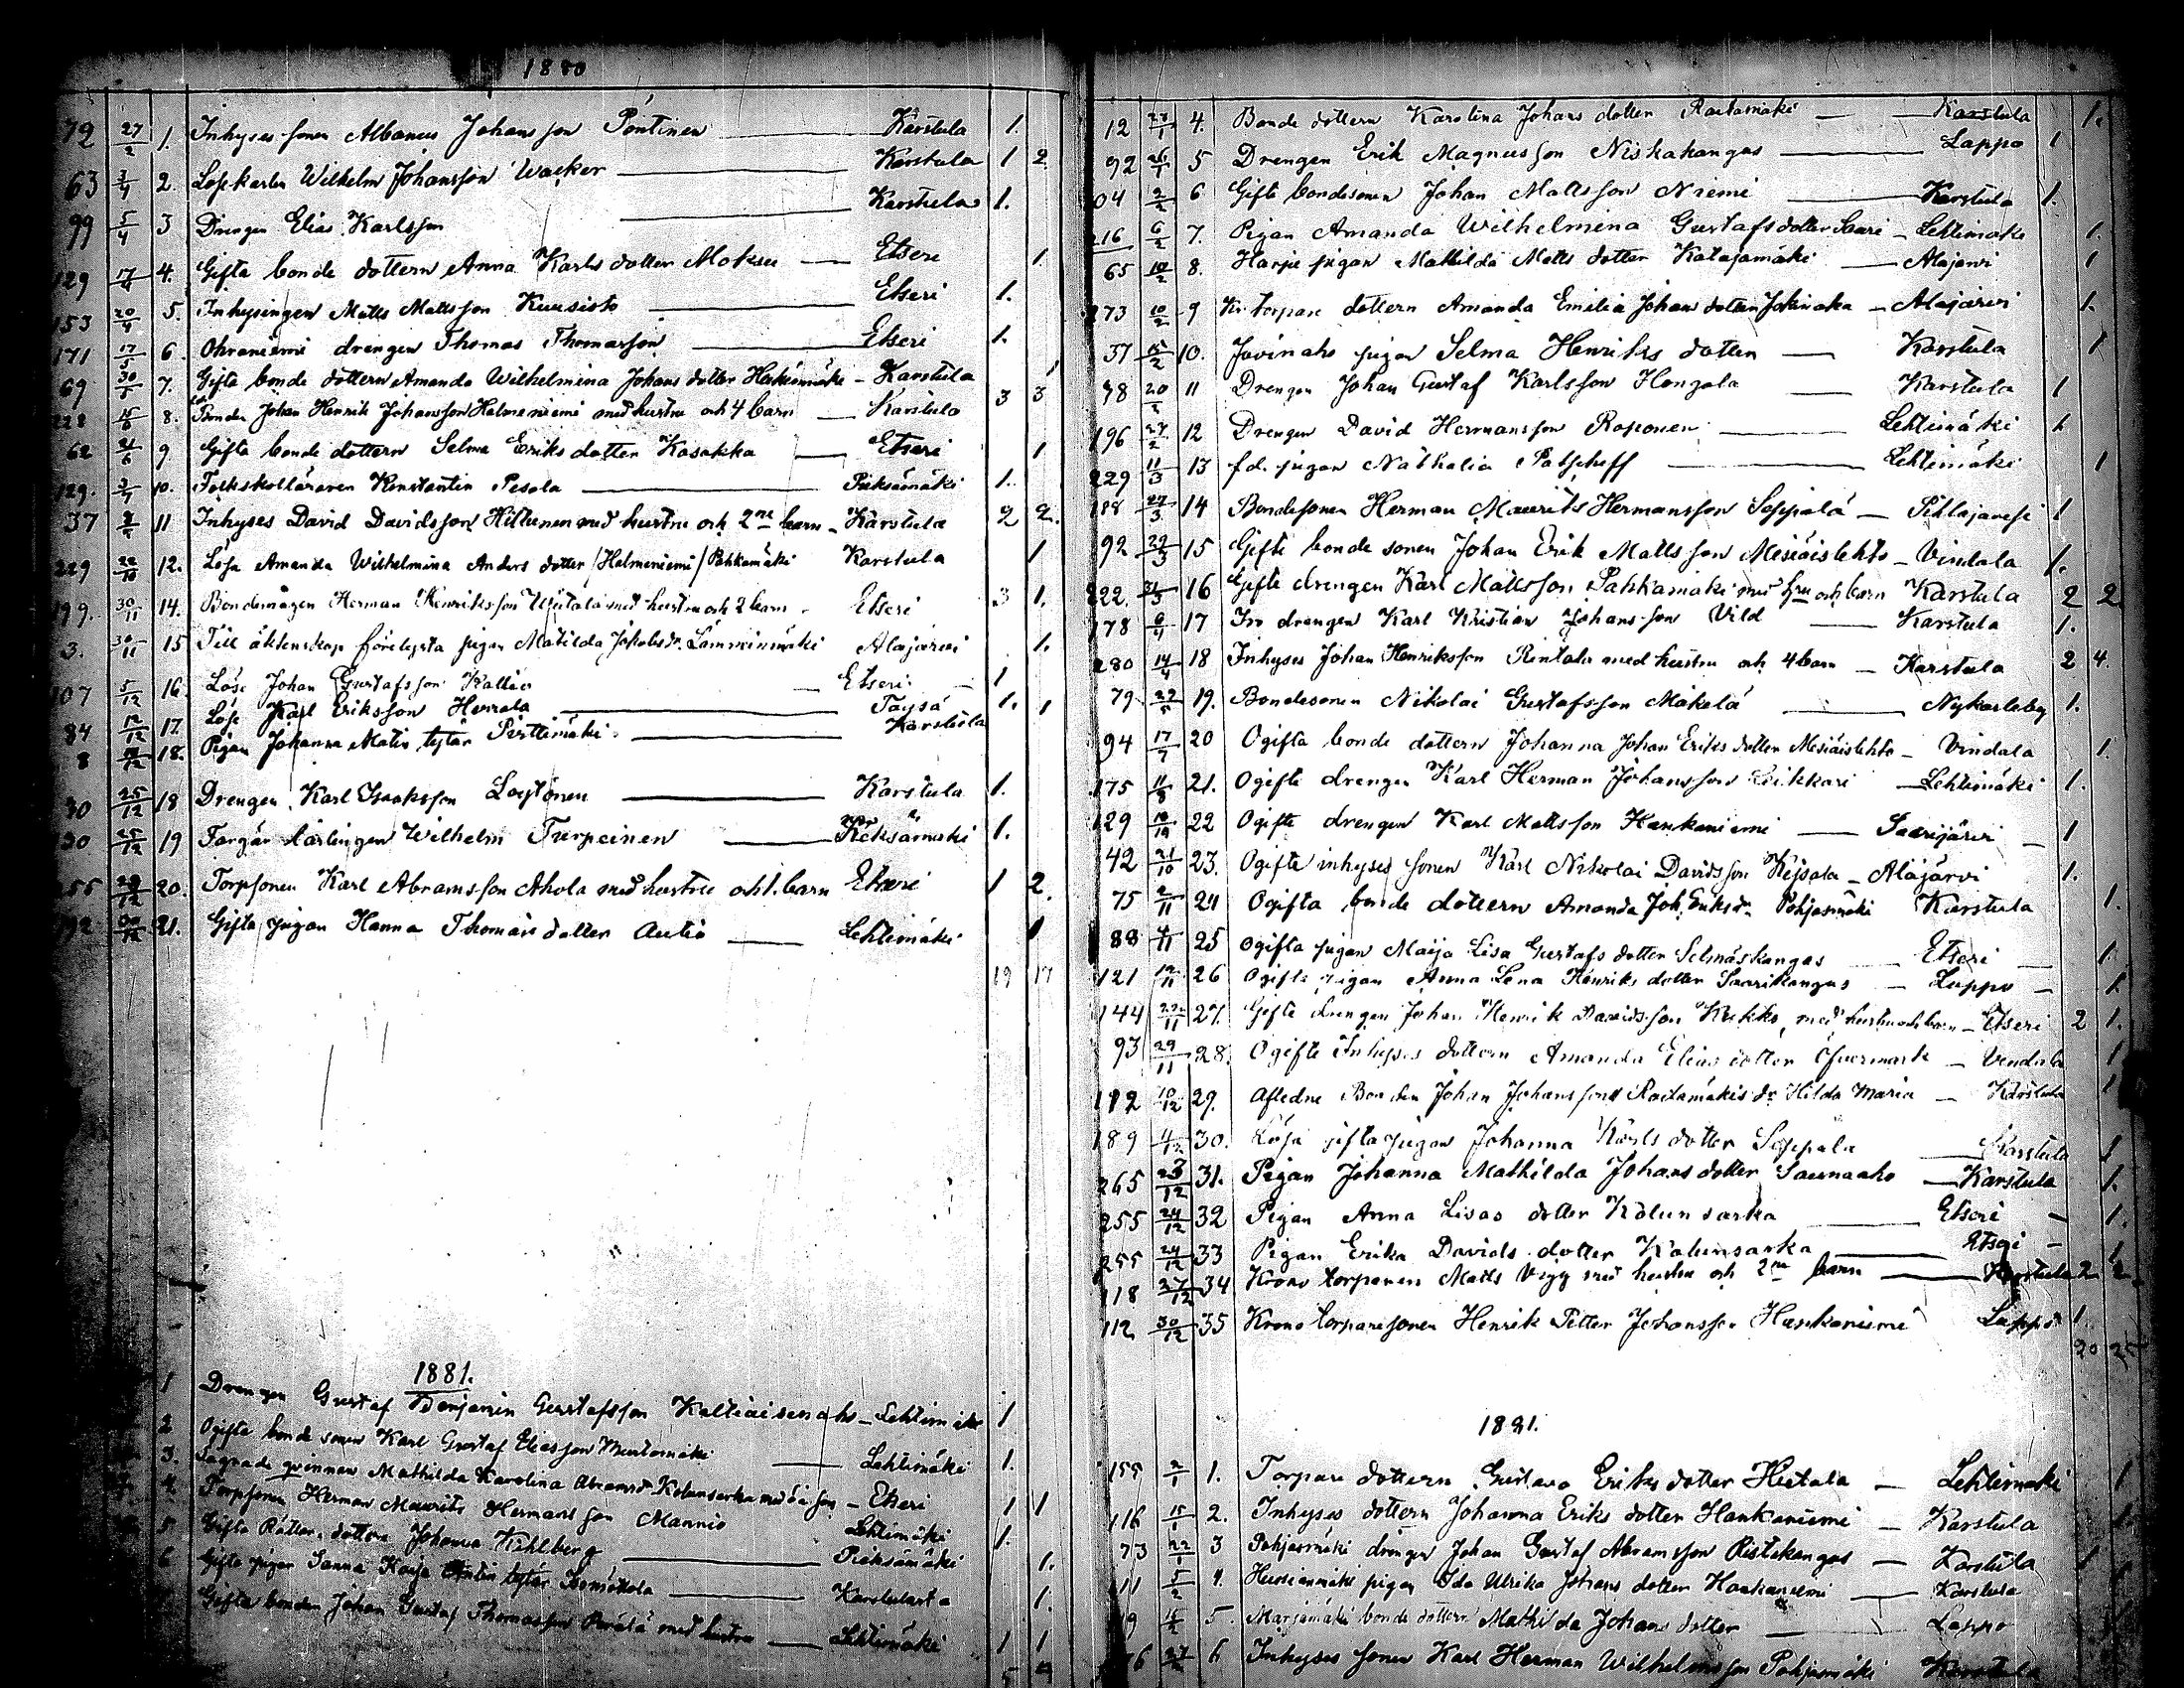 1880
72 27/2 1. Inhyses sonen Albanus Johansson Pöntinen — Karstula 1.
63 3/4 2. Löskarlen Wilhelm Johansson Wacker — Karstula 1 2
99 5/4 3 Drengen Elias Karlsson — Karstula 1.
129 17/4 4. Gifta bonde dottern Anna Karls dotter Moksu — Etseri 1.
153 20/4 5. Inhysingen Matts Mattsson Kuusisto — Etseri 1.
171 17/5 6. Ohraniemi drengen Thomas Thomasson — Etseri 1.
69 30/5 7. Gifta bonde dottern Amanda Wilhelmina Johans dotter — Karstula 1
228 15/6 8. Bonden Johan Henrik Johansson Halmeniemi med hustru och 4 barn — Karstula 3 3
62 21/6 9 Gifta bonde dottern Selma Eriks dotter Kasakka — Etseri 1
129. 10. Folkskolläraren Konstantin Pesola — Pieksämäki 1.
37 11 Inhyses David Davidsson Hiltunen med hustru och 2ne barn — Karstula 2 2.
229 22/10 12. Lösa Amanda Wilhelmina Anders dotter /Halmeniemi/ Pohkamäki Karstula 1
199. 30/11 14. Bondemågen Herman Henriksson Ujutala med hustru och 2 barn — Etseri 3 1.
3. 30/11 15 Till äktenskap förelysta pigan Matilda Jakobs dr. Lamminmäki Alajärvi 1.
107 5/12 16. Löse Johan Gustafsson Kallio — Etseri — 1
84 12/12 17. Löse Karl Eriksson Hernala — Töysä 1.
8 18. Pigan Johanna Matin tytär Pirttimäki — Karstula 1
30 25/12 18 Drengen Karl Isaksson Löytönen — Karstula 1.
20 25/12 19 Fargär lärlingen Wilhelm Turpeinen — Pieksämäki 1.
255 28/12 20. Torpsonen Karl Abramsson Ahola med hustru och 1. barn Etseri 1 2.
192 30/12 21. Gifta pigan Hanna Thomas dotter Autio — Lehtimäki 1
19 17
1881.
1 Drengen Gustaf Benjamin Gustafsson Keltiaisenaho — Lehtimäki 1
2 Ogifta bonde sonen Karl Gustaf Eliasson Mustamäki — Lehtimäki 1.
3. Lagrade qvinnan Mathilda Karolina Abramsdr Kolunsarka med oä son — Etseri 1 1
4 Torpsonen Herman Maurits Hermansson Mannio Lehtimäki 1.
5. Gifta dottern Johanna Kihlberg — Pieksämäki 1.
6 Gifta pigan Sanna Kaisa Antin tytär — Karstulasta 1.
Gifta bonden Johan Gustaf Thomasson Perälä med hustru — Lehtimäki 1 1
5 4
12 23/1 4. Bonde dottern Karolina Johans dotter Raatamäki — Karstula 1.
92 26/1 5 Drengen Erik Magnusson Niskakangas — Lappo 1
04 2/2 6 Gifte bondesonen Johan Mattsson Niemi — Karstula 1.
216 6/2 7. Pigan Amanda Wilhelmina Gustafsdotter Saari — Lehtimäki 1.
65 10/2 8. Harju pigan Mathilda Matts dotter Katajamäki — Alajärvi 1
273 10/2 9 Kr. torpare dottern Amanda Emilia Johans dotter Jokiaho — Alajärvi 1.
37 15/2 10. Joviaho pigan Selma Henriks dotter — Karstula 1
78 20/2 11 Drengen Johan Gustaf Karlsson Hongola — Karstula 1
196 27/2 12 Drengen David Hermansson Roponen — Lehtimäki 1
229 11/3 13 f.d. pigan Nathalia Patscheff — Lehtimäki 1
188 27/3 14 Bondesonen Herman Maurits Hermansson Seppälä — Pihlajavesi 1
92 29/3 15 Gifte bonde sonen Johan Erik Mattsson Mesiäislehto — Vindala 1.
222. 31/3 16 Gifte drengen Karl Mattsson Pahkamäki med hru och barn Karstula 2 2
178 6/4 17 Iso drengen Karl Kristian Johansson Vild — Karstula 1.
280 14/4 18 Inhyses Johan Henriksson Rintala med hustru och 4 barn — Karstula 2 4.
79 22/5 19. Bondesonen Nikolai Gustafsson Mäkelä — Nykarleby 1.
94 17/7 20 Ogifta bonde dottern Johanna Johan Eriks dotter Mesiäislehto — Vindala 1.
175 11/8 21. Ogifte drengen Karl Herman Johansson Leikkari — Lehtimäki 1.
129 10/10 22 Ogifte drengen Karl Mattsson Hankaniemi — Saarijärvi — 1
42 21/10 23. Ogifte inhyses sonen Karl Nikolai Davidsson Kejsala — Alajärvi 1.
75 2/11 24 Ogifta bonde dottern Amanda Joh. Eriks dr Pohjasmäki Karstula 1.
88 4/11 25 Ogifta pigan Maija Lisa Gustafs dotter Selmäskangas — Etseri — 1.
121 12/11 26 Ogifta pigan Anna Lena Henriks dotter Saarikangas — Lappo — 1.
144 22/11 27. Gifte drengen Johan Henrik Davidsson Kukko, med hustru och barn — Etseri 2 1.
93 29/11 28. Ogifta Inhyses dottern Amanda Elias dotter Öfvermark — Vindala 1
172 10/12 29. Aflidne Bonden Johan Johanssons Raatamäkis dr Hilda Maria — Karstula 1
189 30. Lösa gifta pigan Johanna Karls dotter Seppälä — Karstula 1
265 23/12 31. Pigan Johanna Mathilda Johans dotter Saunaaho — Karstula 1.
255 24/12 32 Pigan Anna Lisas dotter Kolunsarka — Etseri — 1.
255 24/12 33 Pigan Erika Davids dotter Kolunsarka — Etseri — 1.
118 27/12 34 Krono torparen Matts Vigg med hustru och 2ne barn — Karstula 2 2
112 30/12 35 Krono torparesonen Henrik Petter Johansson Hankaniemi Lappo 1.
20 25
1881.
155 2/1 1. Torpare dottern Gustava Eriks dotter Hietala — Lehtimäki 1
116 15/1 2. Inhyses dottern Johanna Eriks dotter Hankaniemi — Karstula 1
73 22/1 3 Pohjasmäki drengen Johan Gustaf Abramsson Ristakangas — Karstula 1
111 5/2 4. pigan Ida Ulrika Johans dotter Hankaniemi — Karstula
5. Marjamäki bonde dottern Mathilda Johans dotter — Lappo
76 27/2 6 Inhyses sonen Karl Herman Wilhelmsson Pohjasmäki Karstula